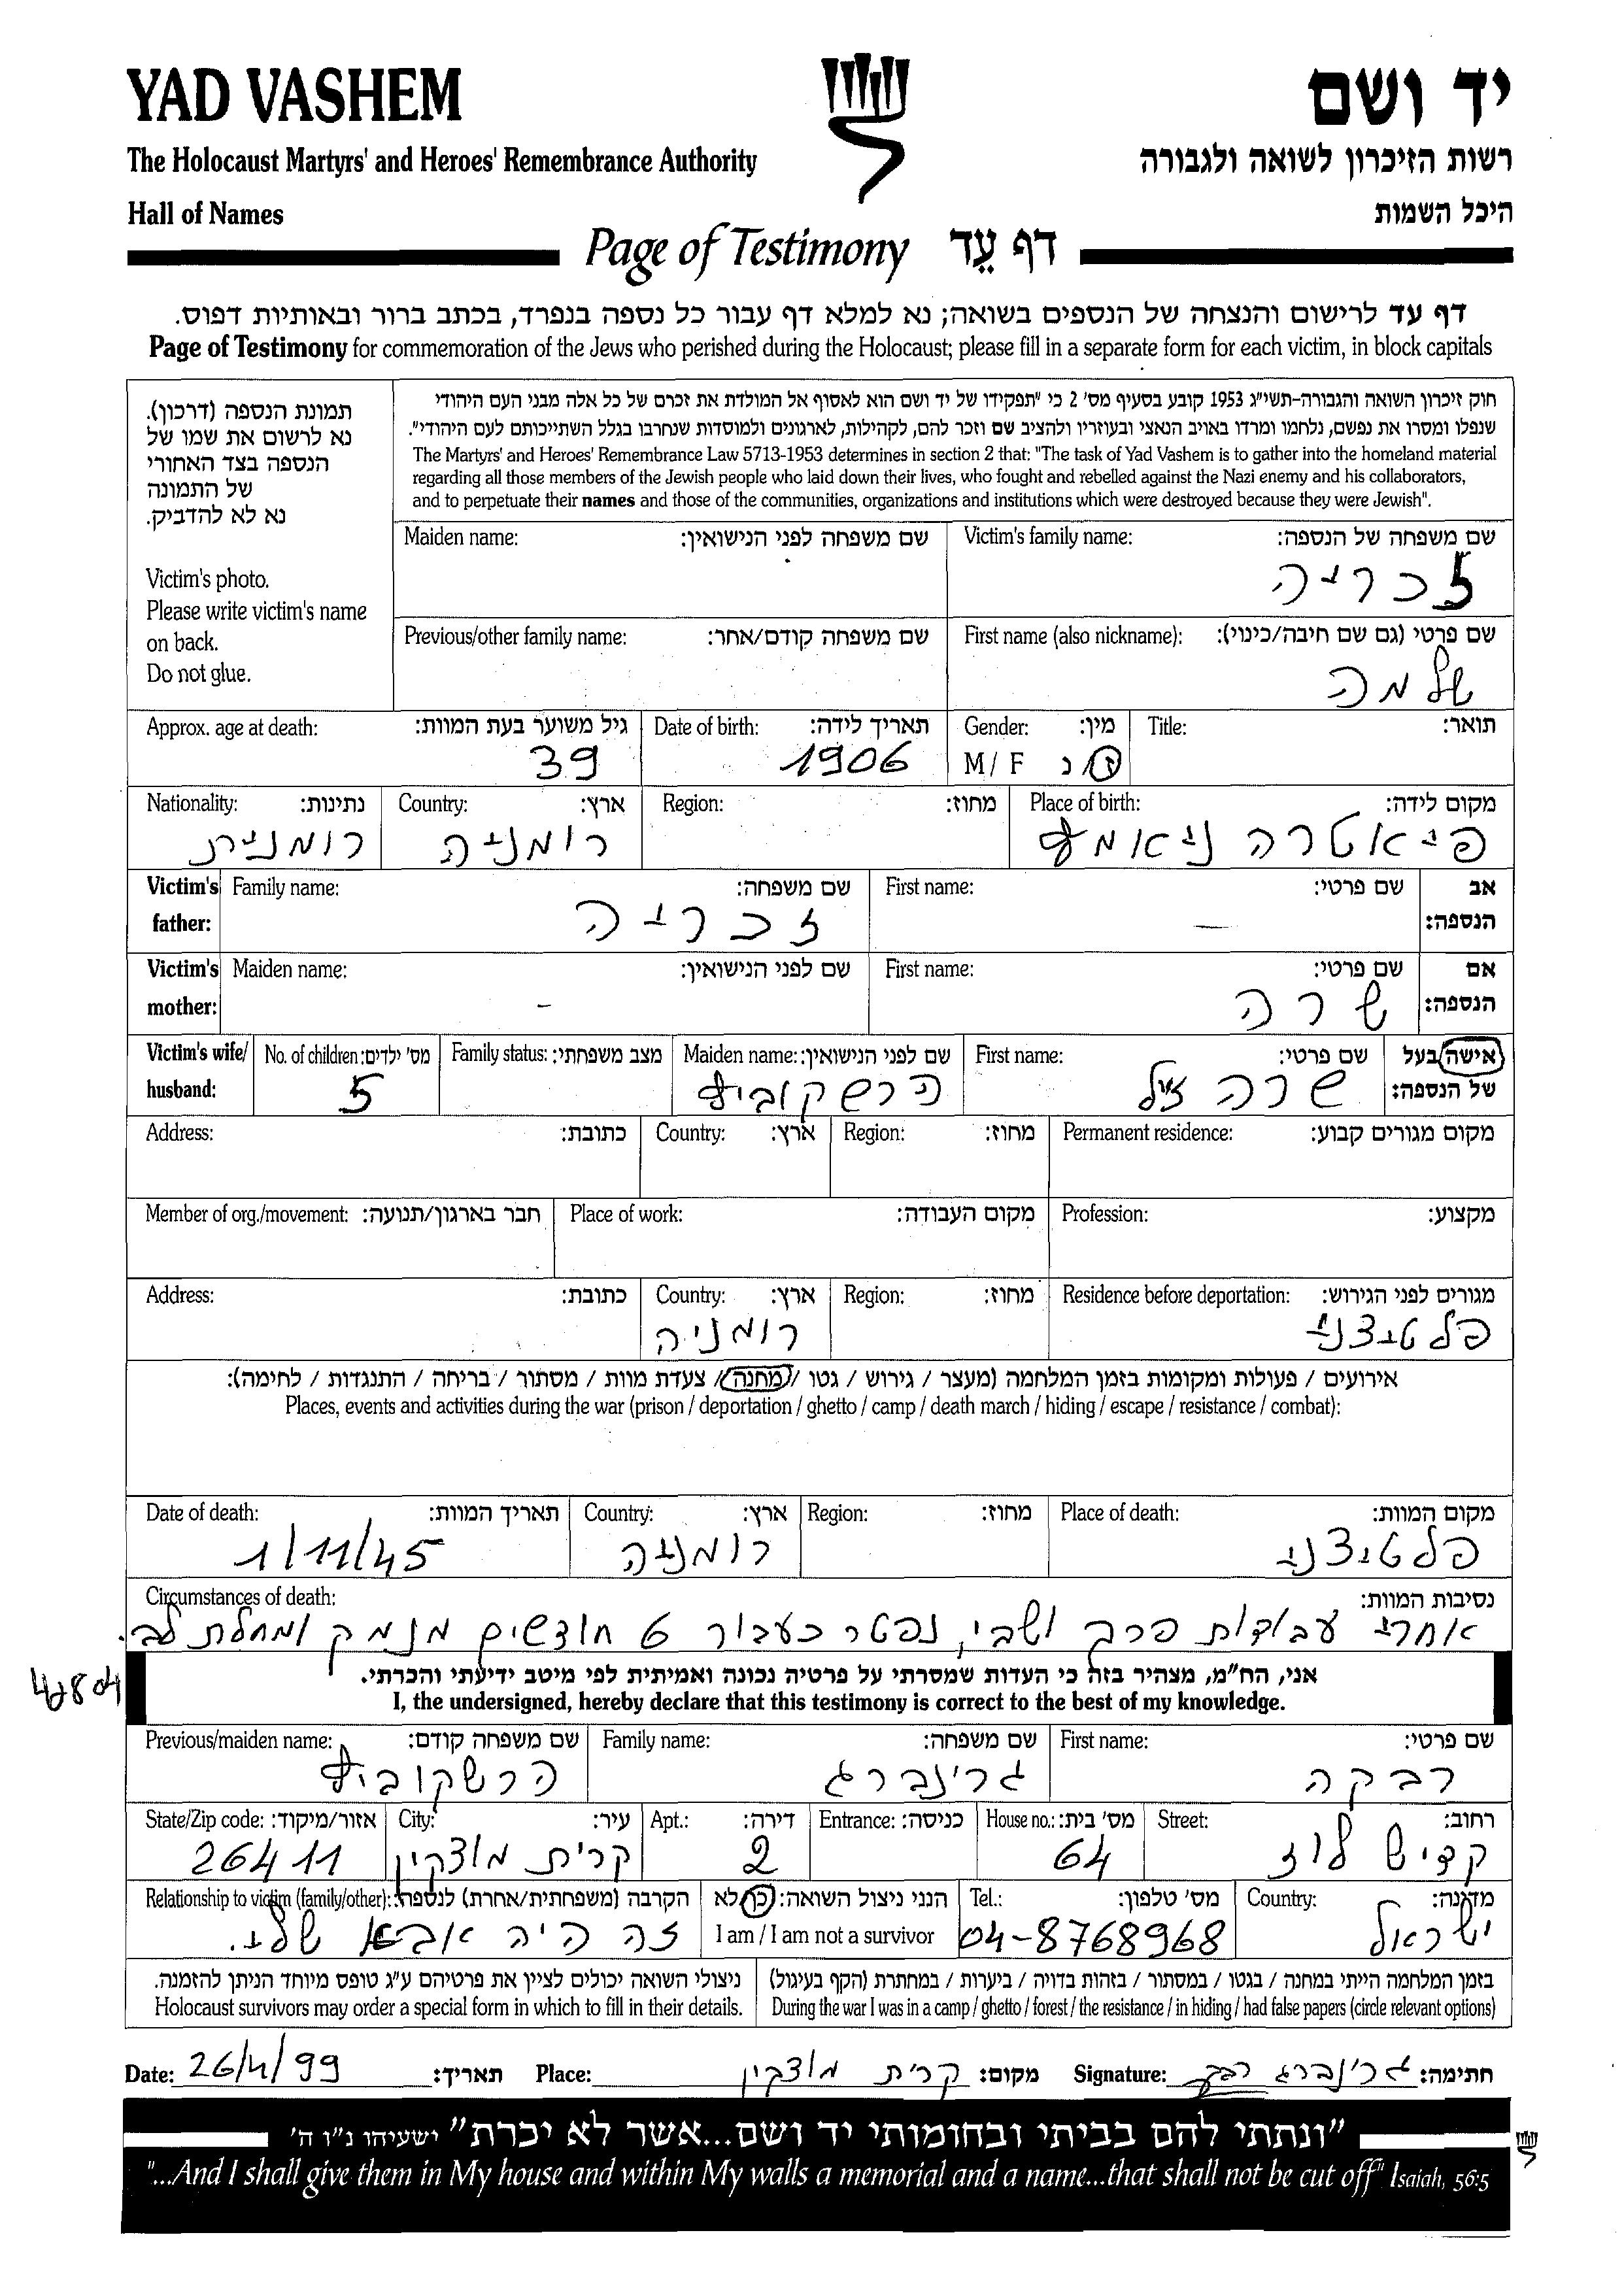 YAD VASHEM
יד ושם
The Holocaust Martyrs' and Heroes' Remembrance Authority
רשות הזיכרון לשואה ולגבורה
Hall of Names
היכל השמות
Page of Testimony דף עֵד
דף עד לרישום והנצחה של הנספים בשואה; נא למלא דף עבור כל נספה בנפרד, בכתב ברור ובאותיות דפוס.
Page of Testimony for commemoration of the Jews who perished during the Holocaust; please fill in a separate form for each victim, in block capitals
תמונת הנספה (דרכון).
נא לרשום את שמו של
הנספה בצד האחורי
של התמונה
נא לא להדביק.
Victim's photo.
Please write victim's name
on back.
Do not glue.
חוק זיכרון השואה והגבורה-תשי"ג 1953 קובע בסעיף מס' 2 כי "תפקידו של יד ושם הוא לאסוף אל המולדת את זכרם של כל אלה מבני העם היהודי
שנפלו ומסרו את נפשם, נלחמו ומרדו באויב הנאצי ובעוזריו ולהציב שם וזכר להם, לקהילות, לארגונים ולמוסדות שנחרבו בגלל השתייכותם לעם היהודי".
The Martyrs' and Heroes' Remembrance Law 5713-1953 determines in section 2 that: "The task of Yad Vashem is to gather into the homeland material
regarding all those members of the Jewish people who laid down their lives, who fought and rebelled against the Nazi enemy and his collaborators,
and to perpetuate their names and those of the communities, organizations and institutions which were destroyed because they were Jewish".
Victim's family name: שם משפחה של הנספה:
זכריה
Maiden name: שם משפחה לפני הנישואין:
First name (also nickname): שם פרטי (גם שם חיבה/כינוי):
שלמה
Previous/other family name: שם משפחה קודם/אחר:
Title: תואר:
Gender: מין:
M / F ז / נ
Date of birth: תאריך לידה:
1906
Approx. age at death: גיל משוער בעת המוות:
39
Place of birth: מקום לידה:
פיאטרה ניאמץ
Region: מחוז:
Country: ארץ:
רומניה
Nationality: נתינות:
רומנית
Victim's father: אב הנספה:
First name: שם פרטי:
—
Family name: שם משפחה:
זכריה
Victim's mother: אם הנספה:
First name: שם פרטי:
שרה
Maiden name: שם לפני הנישואין:
-
Victim's wife/husband: אישה/בעל של הנספה:
First name: שם פרטי:
שרה ז"ל
Maiden name: שם לפני הנישואין:
הרשקוביץ
Family status: מצב משפחתי:
No. of children: מס' ילדים:
5
Permanent residence: מקום מגורים קבוע:
Region: מחוז:
Country: ארץ:
Address: כתובת:
Profession: מקצוע:
Place of work: מקום העבודה:
Member of org./movement: חבר בארגון/תנועה:
Residence before deportation: מגורים לפני הגירוש:
פלטיצני
Region: מחוז:
Country: ארץ:
רומניה
Address: כתובת:
אירועים / פעולות ומקומות בזמן המלחמה (מעצר / גירוש / גטו / מחנה / צעדת מוות / מסתור / בריחה / התנגדות / לחימה):
Places, events and activities during the war (prison / deportation / ghetto / camp / death march / hiding / escape / resistance / combat):
Place of death: מקום המוות:
פלטיצני
Region: מחוז:
Country: ארץ:
רומניה
Date of death: תאריך המוות:
1/11/45
Circumstances of death: נסיבות המוות:
אחרי עבודות פרך ושבי, נפטר כעבור 6 חודשים מנמק ומחלת לב.
אני, הח"מ, מצהיר בזה כי העדות שמסרתי על פרטיה נכונה ואמיתית לפי מיטב ידיעתי והכרתי.
I, the undersigned, hereby declare that this testimony is correct to the best of my knowledge.
First name: שם פרטי:
רבקה
Family name: שם משפחה:
גרינברג
Previous/maiden name: שם משפחה קודם:
הרשקוביץ
Street: רחוב:
קדיש לוז
House no.: מס' בית:
64
Entrance: כניסה:
Apt.: דירה:
2
City: עיר:
קרית מוצקין
State/Zip code: אזור/מיקוד:
26411
Country: מדינה:
ישראל
Tel.: מס' טלפון:
04-8768968
הנני ניצול השואה: כן/לא
I am / I am not a survivor
Relationship to victim (family/other): הקרבה (משפחתית/אחרת) לנספה:
זה היה אבא שלי.
בזמן המלחמה הייתי במחנה / בגטו / במסתור / בזהות בדויה / ביערות / במחתרת (הקף בעיגול)
During the war I was in a camp / ghetto / forest / the resistance / in hiding / had false papers (circle relevant options)
ניצולי השואה יכולים לציין את פרטיהם ע"ג טופס מיוחד הניתן להזמנה.
Holocaust survivors may order a special form in which to fill in their details.
Date: 26/4/99 תאריך: Place: קרית מוצקין מקום: Signature: גרינברג רבקה חתימה:
"ונתתי להם בביתי ובחומותי יד ושם...אשר לא יכרת" ישעיהו נ"ו ה'
"...And I shall give them in My house and within My walls a memorial and a name...that shall not be cut off" Isaiah, 56:5